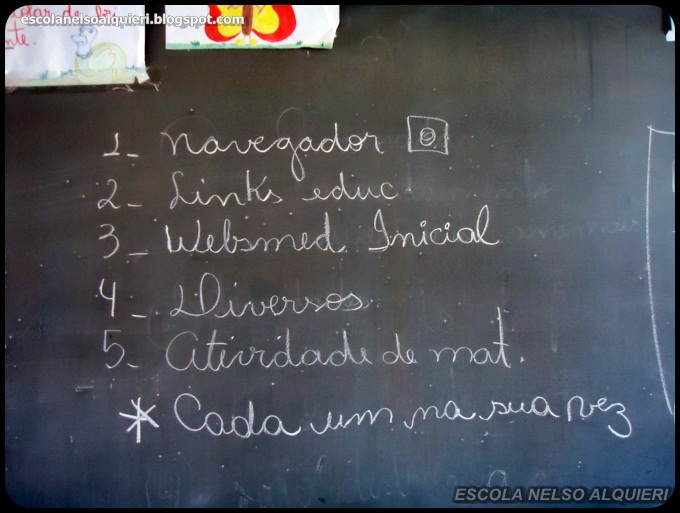 escolanelsoalquieri.blogspot.com
1- Navegador
2- Links educ
3- Websmed Inicial
4- Diversos
5- atividade de mat.
* Cada um na sua vez
ESCOLA NELSO ALQUIERI